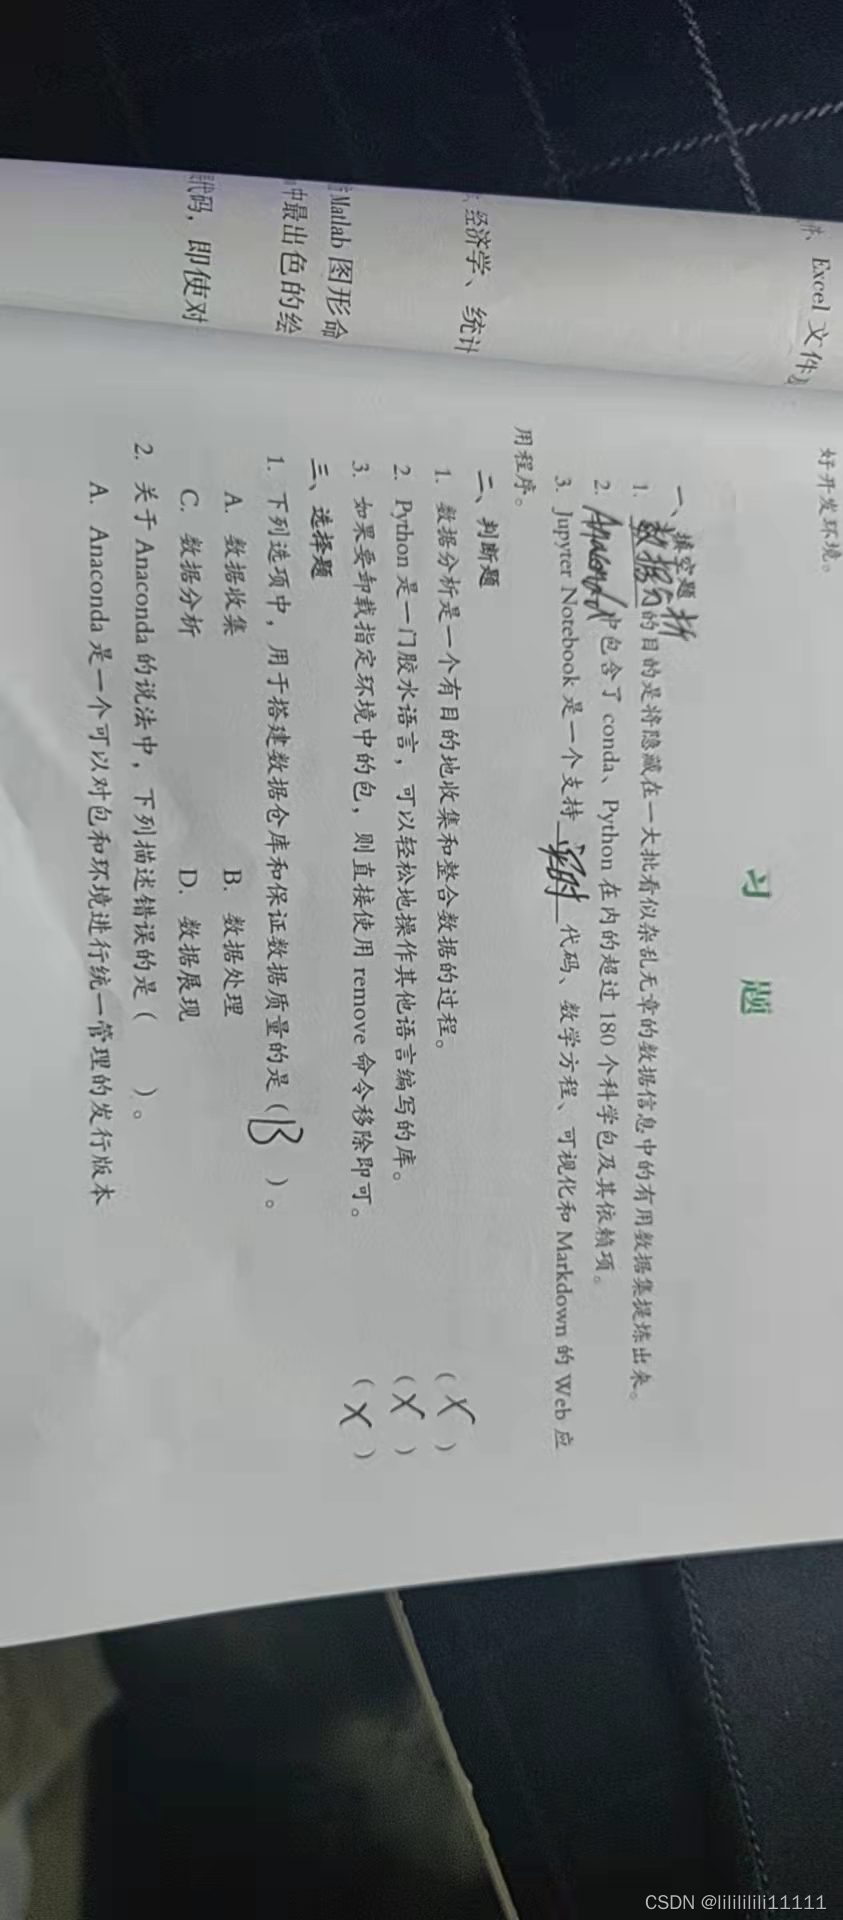 件、Excel 文件
经济学、统计
Matlab 图形命
中最出色的绘
代码，即使对
好开发环境。
习 题
一、填空题
1. 数据分析的目的是将隐藏在一大批看似杂乱无章的数据信息中的有用数据集提炼出来。
2. Anaconda中包含了 conda、Python 在内的超过 180 个科学包及其依赖项。
3. Jupyter Notebook 是一个支持 实时 代码、数学方程、可视化和 Markdown 的 Web 应
用程序。
二、判断题
1. 数据分析是一个有目的地收集和整合数据的过程。 （ X ）
2. Python 是一门胶水语言，可以轻松地操作其他语言编写的库。 （ X ）
3. 如果要卸载指定环境中的包，则直接使用 remove 命令移除即可。 （ X ）
三、选择题
1. 下列选项中，用于搭建数据仓库和保证数据质量的是（ B ）。
A. 数据收集 B. 数据处理
C. 数据分析 D. 数据展现
2. 关于 Anaconda 的说法中，下列描述错误的是（ ）。
A. Anaconda 是一个可以对包和环境进行统一管理的发行版本
CSDN @lilililili11111